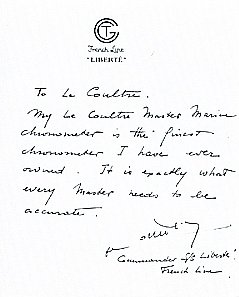 CGT
French Line
"LIBERTÉ"
To Le Coultre.
My Le Coultre Master Marine
chronometer is the finest
chronometer I have ever
owned. It is exactly what
every Master needs to be
accurate.
Commander S/S Liberté
French Line